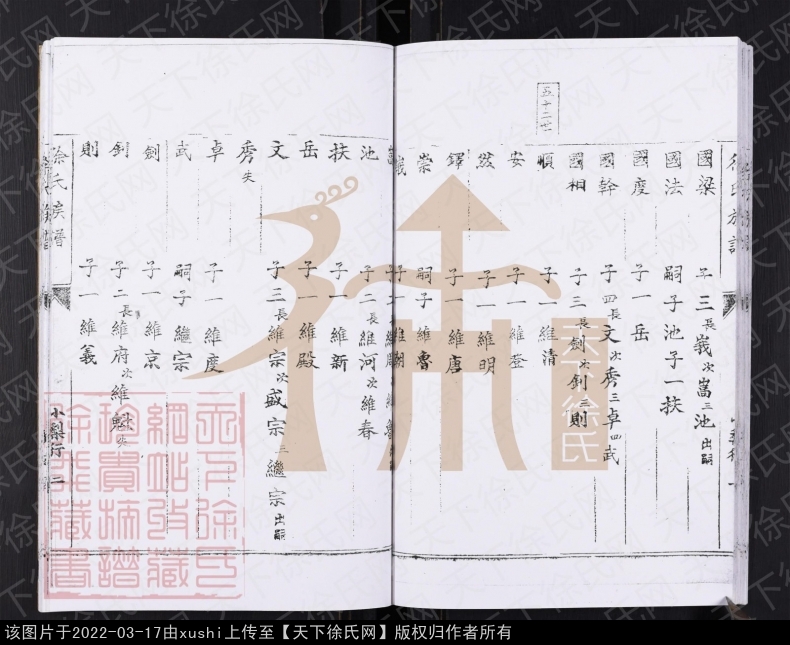 五十二世
國梁 子三 長峩 次嵩 三池 出嗣
國法 嗣子池 子一扶
國度 子一岳
國幹 子四 長文 次秀 三卓 四武
國相 子三 長劍 次釗 三則
順 子一維清
安 子一維登
然 子一維明
鐸 子一維唐
崇 嗣子維魯
峩
池 子二 長維河 次維春
扶 子一維新
岳 子一維殿
文 子三 長維宗 次盛宗 三繼宗 出嗣
秀 失
卓 子一維度
武 嗣子繼宗
劍 子一維京
釗 子二 長維府 次維魁 失
則 子一維義
徐氏族譜
小梨行 二
天下徐氏
天下徐氏网
该图片于2022-03-17由xushi上传至【天下徐氏网】版权归作者所有